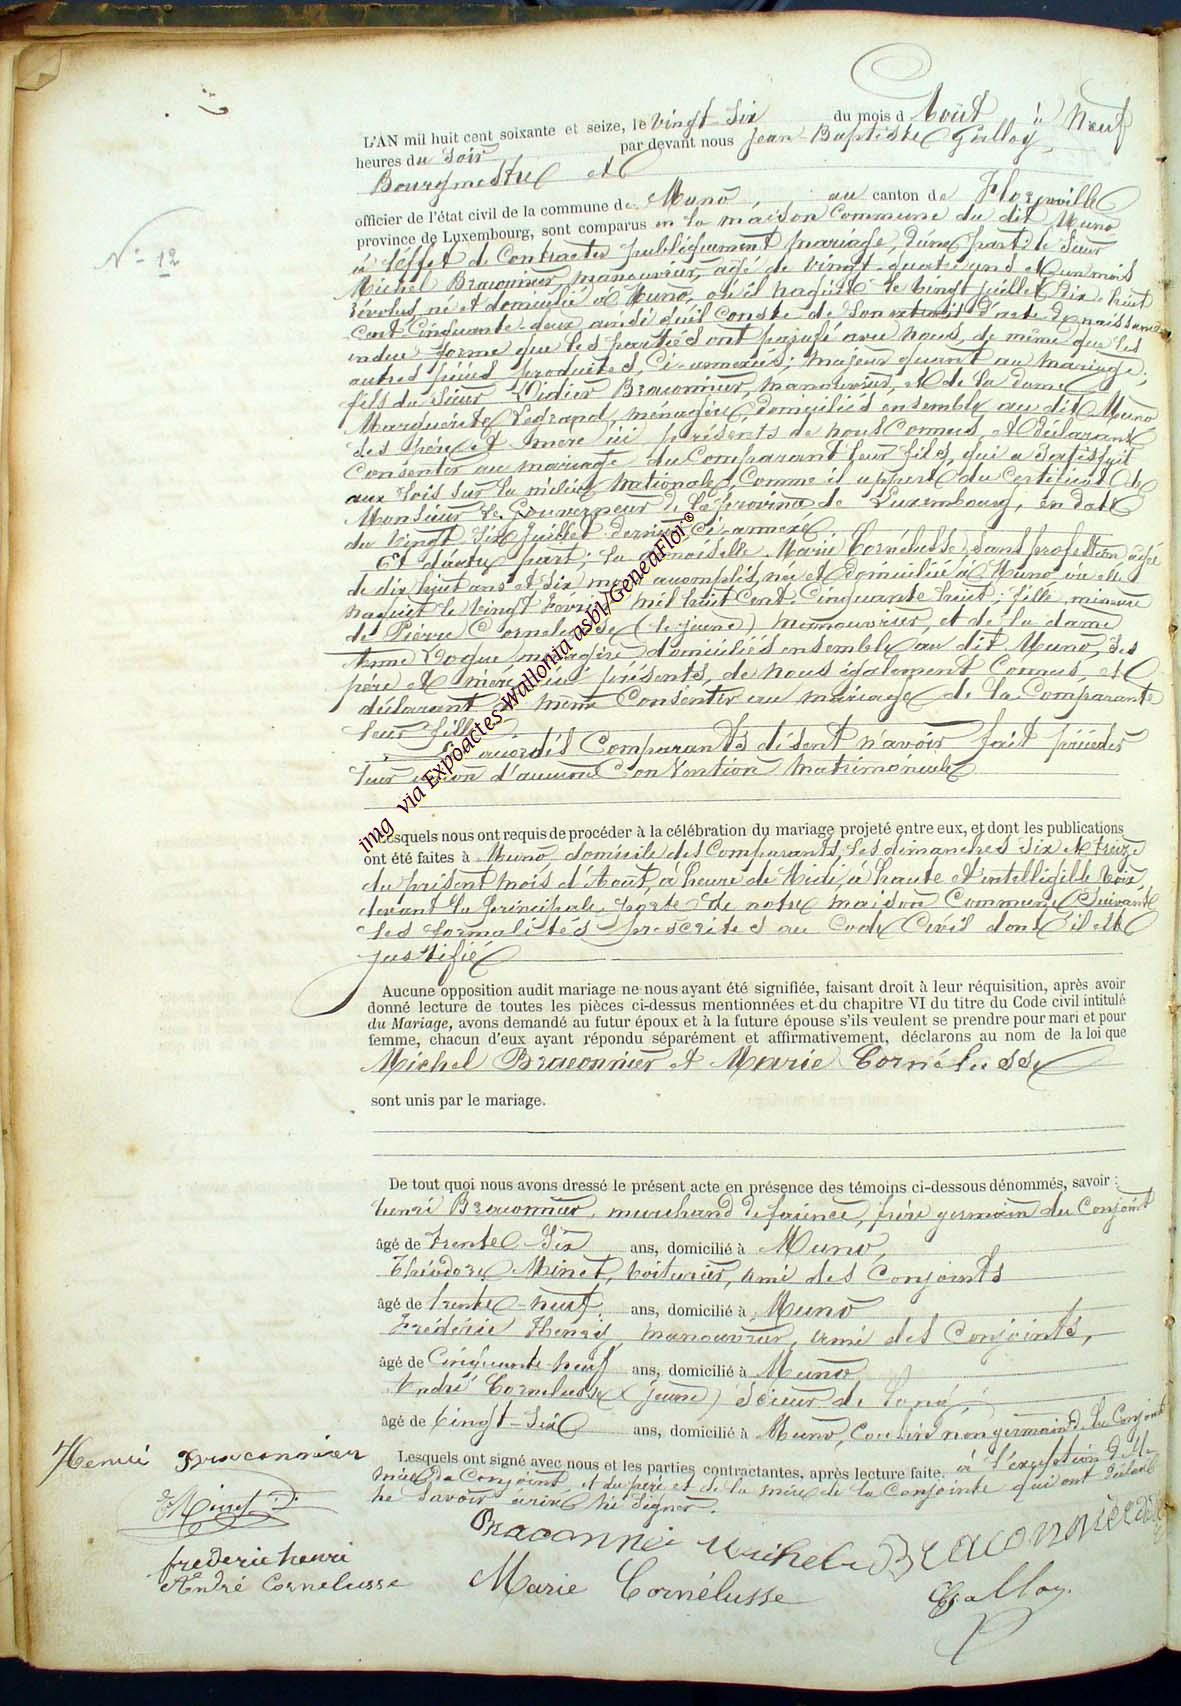 L'AN mil huit cent soixante et seize, le Vingt-Six du mois d'Août à Neuf
heures du Soir par devant nous Jean-Baptiste Galloy,
Bourgmestre et
officier de l'état civil de la commune de Muno, au canton de Florenville
province de Luxembourg, sont comparus en la maison Commune du dit Muno
N° 12
à l'effet de Contracter publiquement mariage, d'une part: le Sieur
Michel Braconnier, manouvrier, agé de vingt-quatre ans et un mois
révolus, né et domicilié à Muno, où il naquit le Vingt juillet dix-huit
Cent Cinquante-deux ainsi qu'il conste de Son extrait d'acte de naissance
en due forme que les parties ont parafé avec nous, de même que les
autres pièces produites, Ci-annexées; majeur quant au mariage;
fils du Sieur Didier Braconnier, manouvrier, et de la dame
Marguérite Legrand, ménagère, domiciliés ensemble au dit Muno
Ses père et mère ici présents de nous Connus et déclarant
Consentir au mariage du Comparant leur fils, qui a Satisfait
aux lois sur la milice Nationale, Comme il appert du Certificat de
Monsieur le Gouverneur de la province de Luxembourg, en date
du Vingt Six Juillet dernier Ci-annexé
Et d'autre part, la demoiselle Marie Cornélusse, Sans profession, agée
de dix huit ans et Six mois accomplis, née et domiciliée à Muno, où elle
naquit le Vingt Février mil huit Cent Cinquante huit; fille mineure
de Pierre Cornelusse (le jeune) manouvrier, et de la dame
ménagère domiciliés ensemble au dit Muno, Ses
père et mère ici présents, de nous également Connus, et
déclarant de même Consentir au mariage de la Comparante
leur fille
Comparants disent n'avoir fait précéder
leur union d'aucune Convention Matrimoniale
img via Expoactes-Wallonia asbl/GeneaFlor©
Lesquels nous ont requis de procéder à la célébration du mariage projeté entre eux, et dont les publications
ont été faites à Muno domicile des Comparants, les dimanches Six et treize
du présent mois d'Août, à heure de Midi, à haute et intelligible Voix,
devant la principale porte de notre maison Commune, Suivant
les formalités prescrites au Code Civil dont il est
justifié
Aucune opposition audit mariage ne nous ayant été signifiée, faisant droit à leur réquisition, après avoir
donné lecture de toutes les pièces ci-dessus mentionnées et du chapitre VI du titre du Code civil intitulé
du Mariage, avons demandé au futur époux et à la future épouse s'ils veulent se prendre pour mari et pour
femme, chacun d'eux ayant répondu séparément et affirmativement, déclarons au nom de la loi que
Michel Braconnier et Marie Cornélusse
sont unis par le mariage.
De tout quoi nous avons dressé le présent acte en présence des témoins ci-dessous dénommés, savoir :
henri Braconnier, marchand de faïence, frère germain du Conjoint
âgé de trente-Six ans, domicilié à Muno,
Théodore Minet, Voiturier, ami des Conjoints
âgé de trente-neuf, ans, domicilié à Muno
Frédéric Henry, manouvrier, ami des Conjoints,
âgé de Cinquante-neuf ans, domicilié à Muno,
André Cornelusse (jeune) Scieur de long,
âgé de Vingt-Six ans, domicilié à Muno, Cousin non germain de la Conjointe
Lesquels ont signé avec nous et les parties contractantes, après lecture faite. à l'exception de la
mère du Conjoint et du père et de la mère de la Conjointe qui ont déclaré
ne Savoir écrire ni Signer.
Henri Braconnier
Minet
frederic henri
André Cornelusse
Braconnier Michel Braconnier
Marie Cornélusse
Galloy.